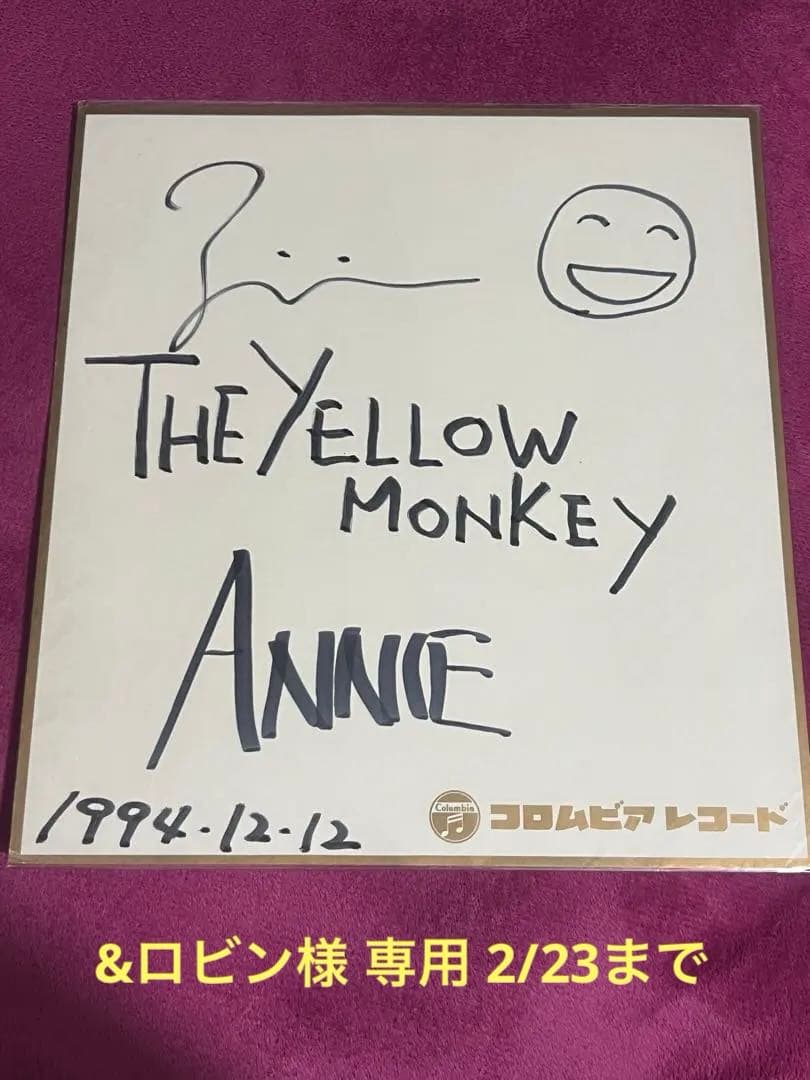 THE YELLOW
MONKEY
ANNIE
1994.12.12
Columbia
コロムビア レコード
&ロビン様 専用 2/23まで